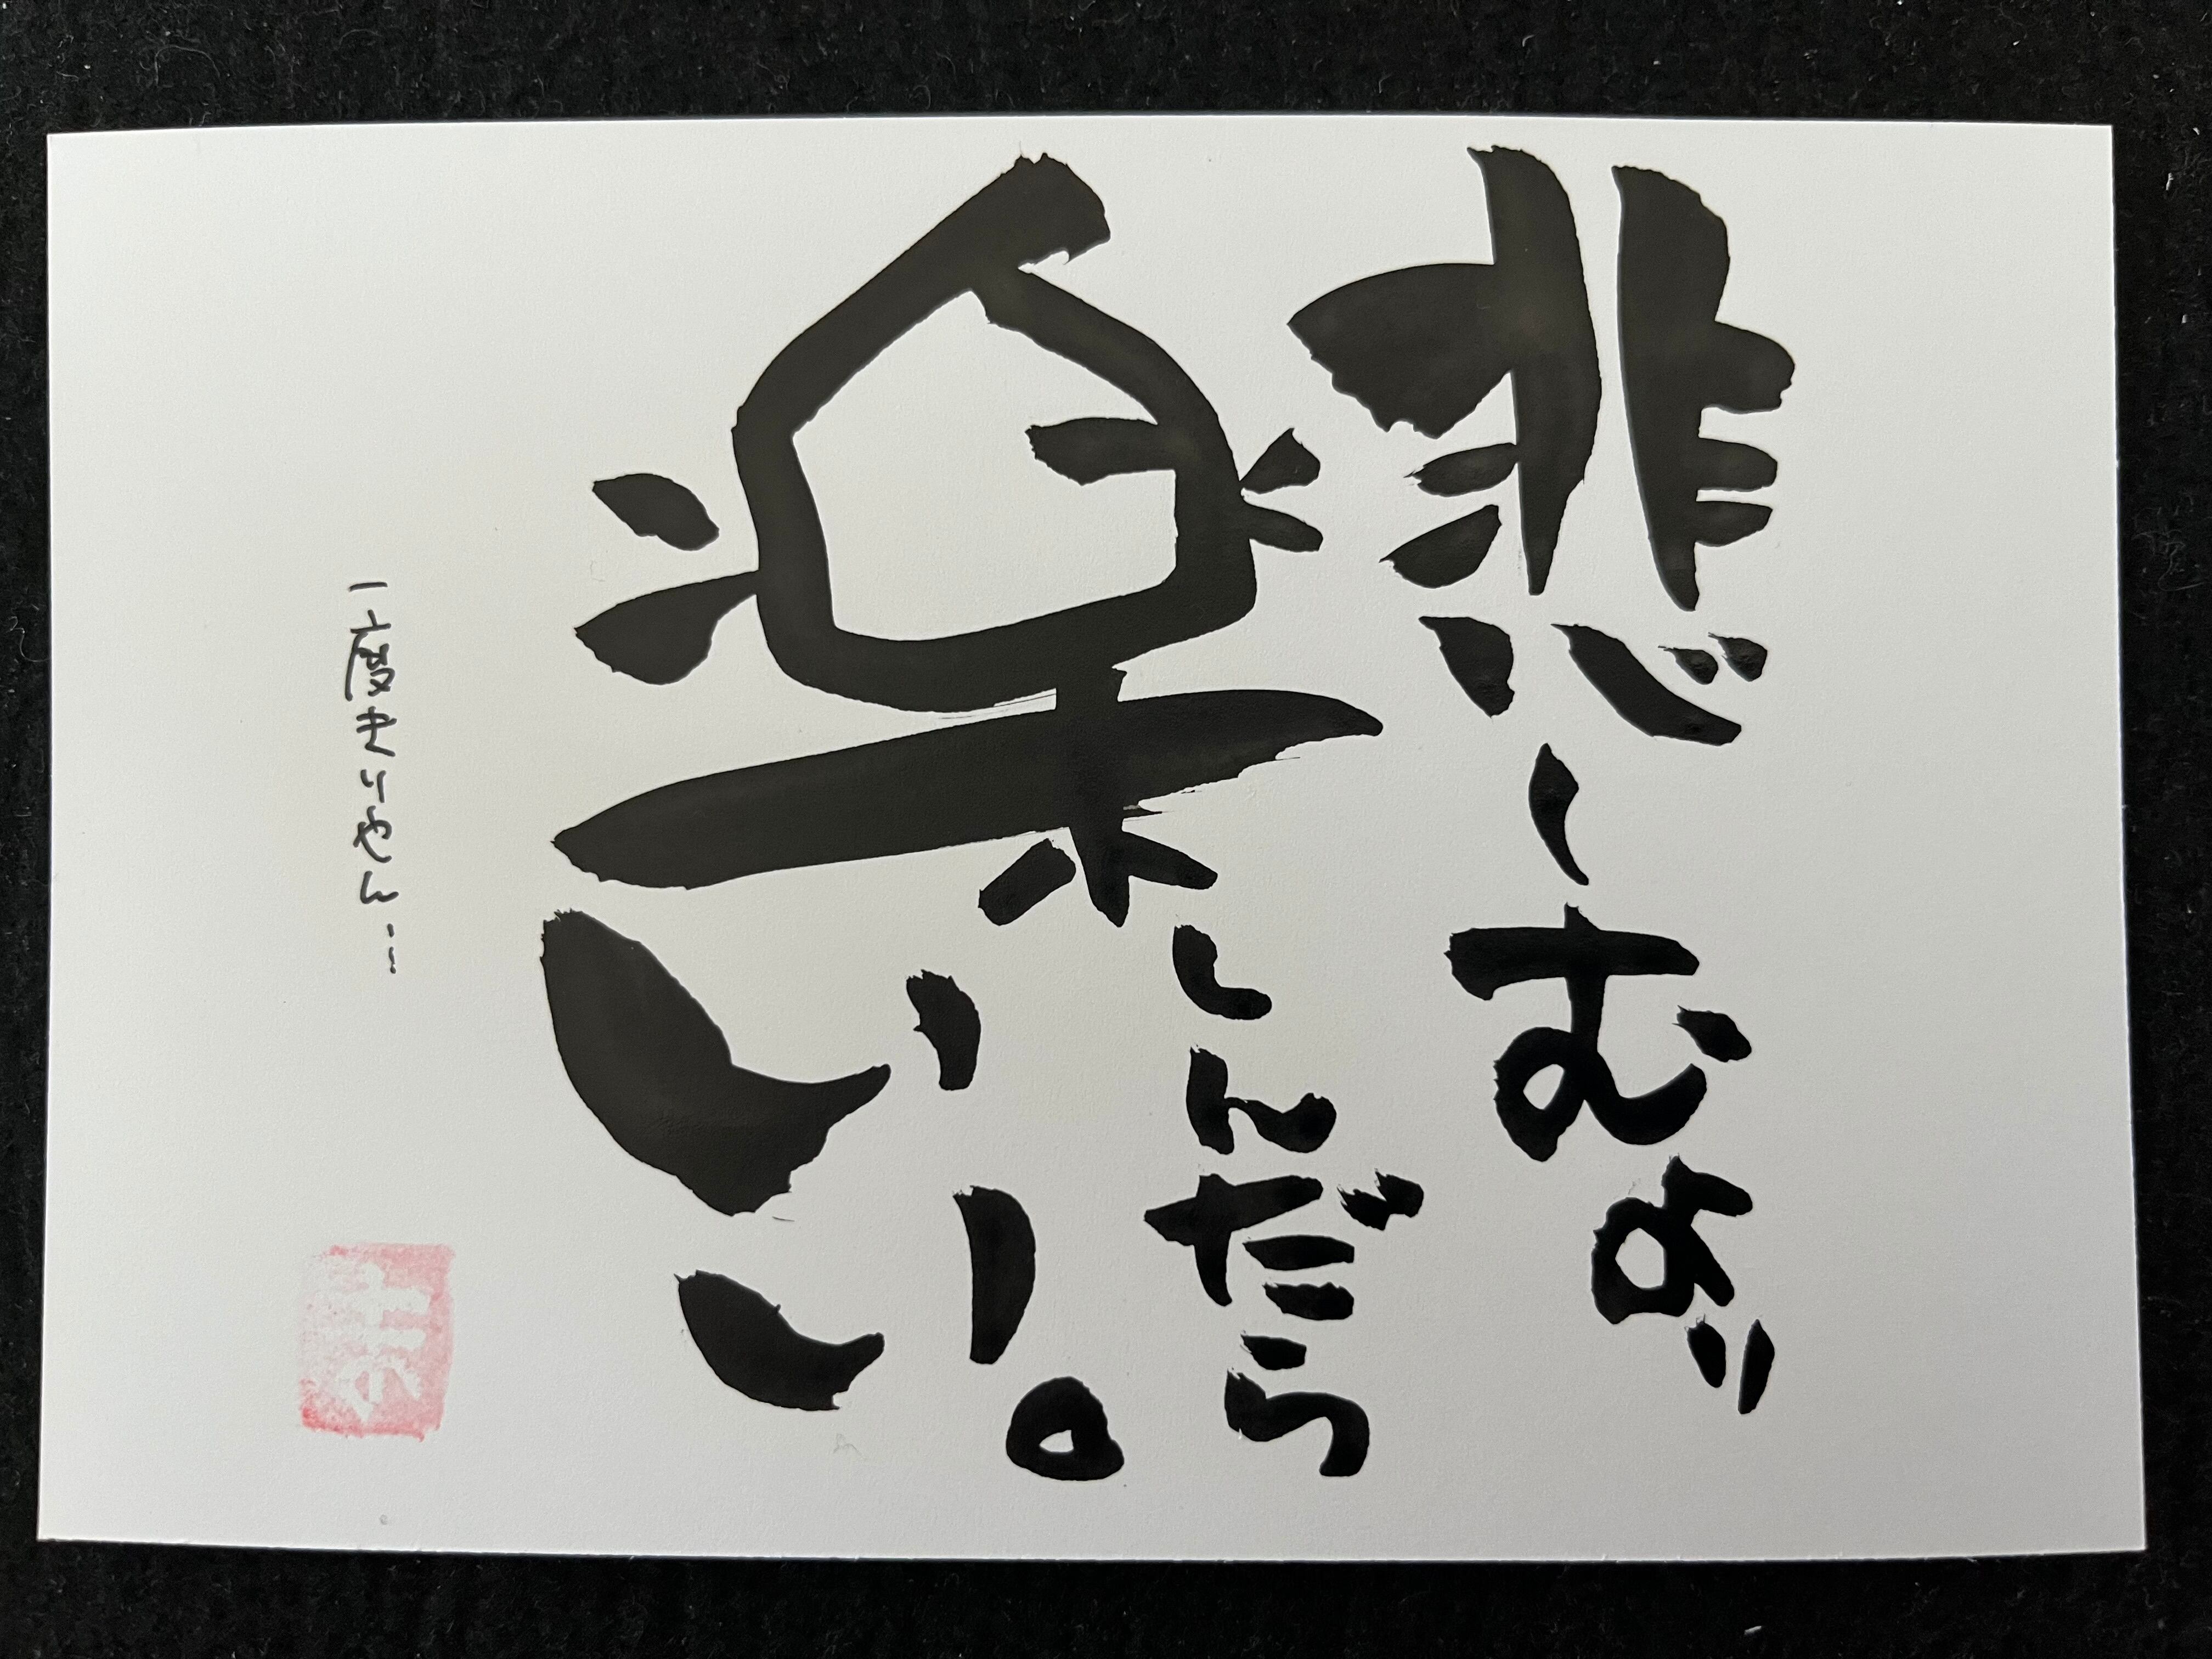 悲しむより
楽しんだら
いい。
一度きりやん…